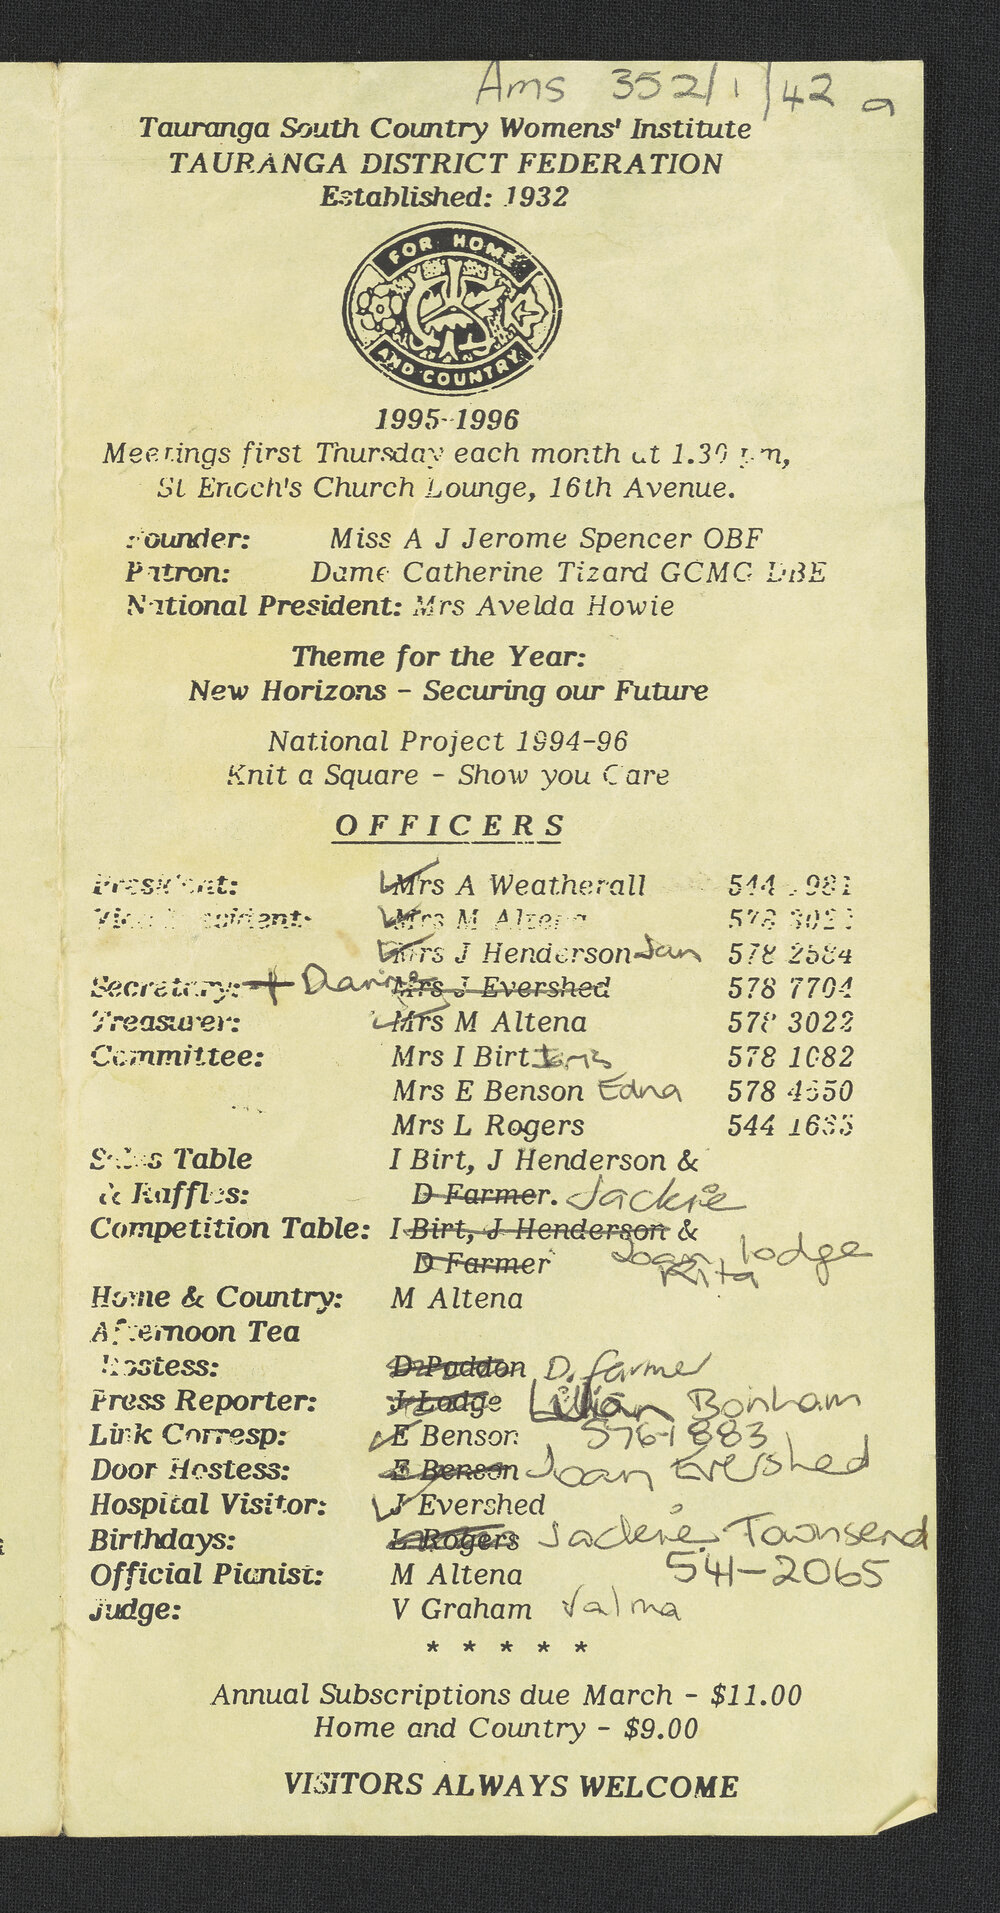 Ams 352/1/42 a
Tauranga South Country Womens' Institute
TAURANGA DISTRICT FEDERATION
Established: 1932
FOR HOME
AND COUNTRY
1995-1996
Meetings first Thursday each month at 1.30 pm,
St Enoch's Church Lounge, 16th Avenue.
Founder: Miss A J Jerome Spencer OBE
Patron: Dame Catherine Tizard GCMG DBE
National President: Mrs Avelda Howie
Theme for the Year:
New Horizons - Securing our Future
National Project 1994-96
Knit a Square - Show you Care
OFFICERS
President: Mrs A Weatherall 544 981
Vice President: Mrs M Altena 578 3022
Mrs J Henderson Jan 578 2584
Secretary: + Mrs J Evershed 578 7704
Treasurer: Mrs M Altena 578 3022
Committee: Mrs I Birt 578 1082
Mrs E Benson Edna 578 4550
Mrs L Rogers 544 1635
Sales Table I Birt, J Henderson &
& Raffles: D Farmer. Jackie
Competition Table: I Birt, J Henderson &
D Farmer Joan lodge
Rita
Home & Country: M Altena
Afternoon Tea
Hostess: D Paddon D. farmer
Press Reporter: J Lodge Lillian Bonham
Link Corresp: E Benson 576-1883
Door Hostess: E Benson Joan Evershed
Hospital Visitor: J Evershed
Birthdays: L Rogers Jackie Townsend
Official Pianist: M Altena 541-2065
Judge: V Graham Valma
* * * * *
Annual Subscriptions due March - $11.00
Home and Country - $9.00
VISITORS ALWAYS WELCOME